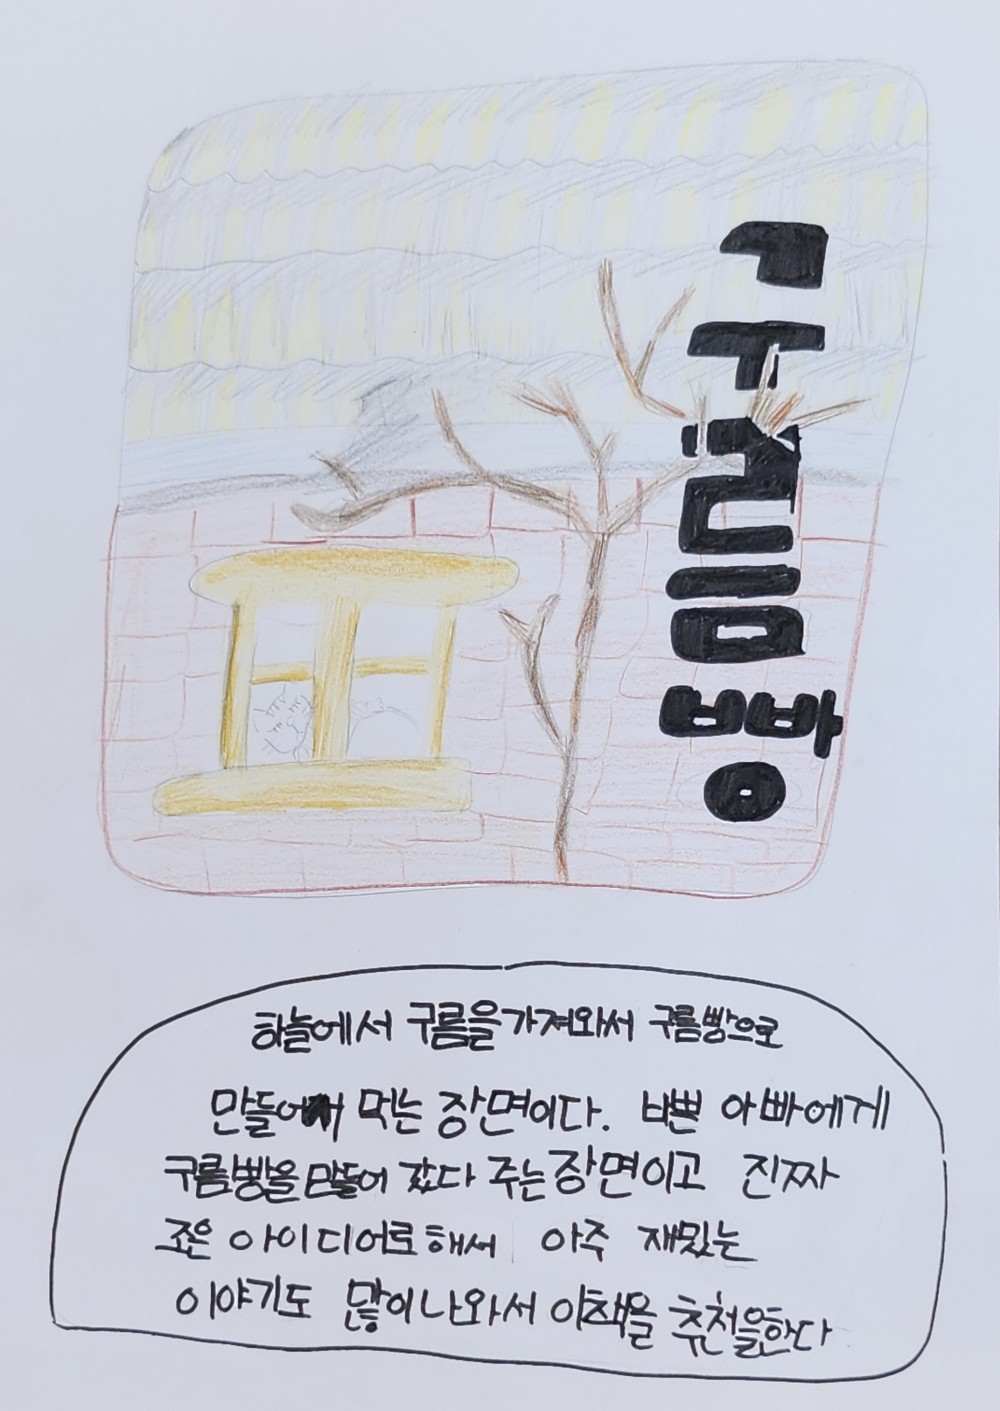 구름빵
하늘에서 구름을 가져와서 구름빵으로
만들어서 먹는 장면이다. 바쁜 아빠에게
구름빵을 만들어 갔다 주는 장면이고 진짜
조은 아이디어로 해서 아주 재밌는
이야기도 많이 나와서 이책을 추천을한다